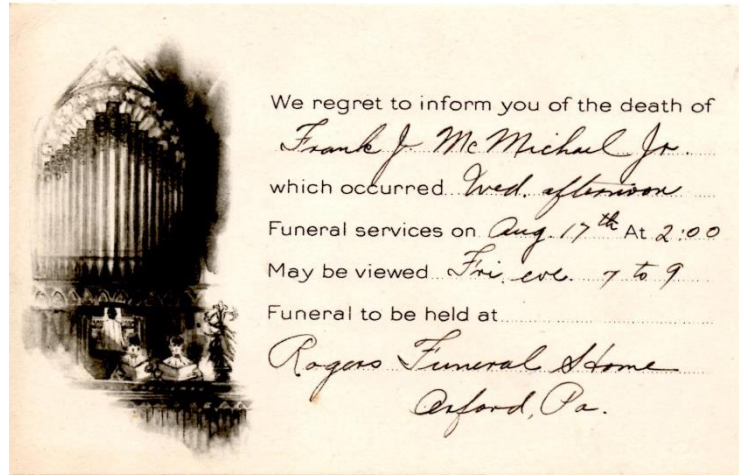 We regret to inform you of the death of
Frank J. McMichael Jr.
which occurred Wed. afternoon
Funeral services on Aug. 17th At 2:00
May be viewed Fri. eve. 7 to 9
Funeral to be held at
Rogers Funeral Home
Oxford, Pa.